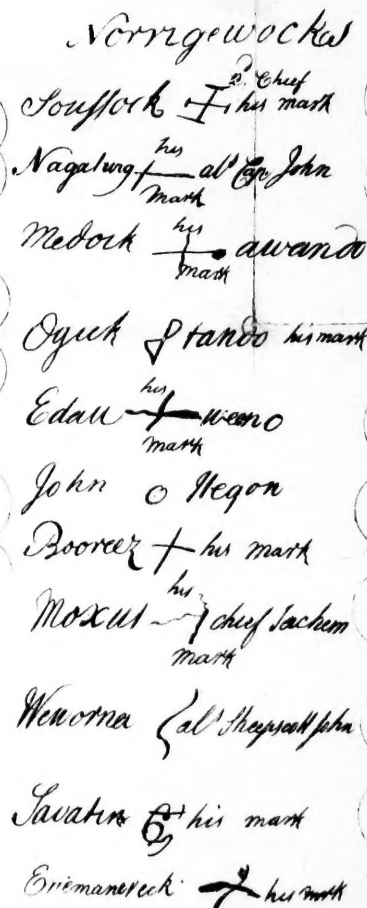 Norrigewocks
Soussock his mark 2d Chief
Nagatung his mark als Cap John
Medock his mark awando
Oguek tando his mark
Edau his mark ween
John Hegon
Booreez his mark
Moxus his mark chief Sachem
Wenorna als Sheepscott John
Savatin his mark
Eriemanereck his mark